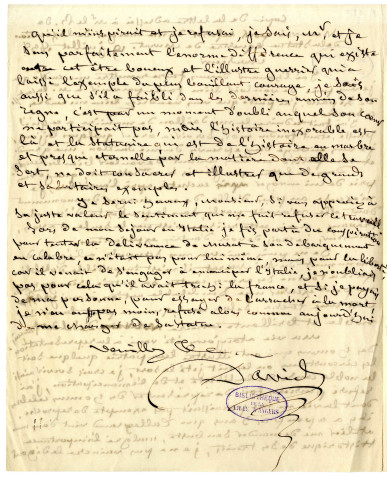 qu'il m'inspirait et je refusai, je sais, Mr, et je
sens parfaitement l'énorme différence qui existe
entre cet être boueux et l'illustre guerrier qui a
laissé l'exemple du plus bouillant courage, je sais
aussi que s'il a faibli dans les dernières années de son
règne, c'est par un moment d'oubli auquel son cœur
ne participait pas, mais l'histoire inexorable est
là et la Statuaire qui est de l'histoire en marbre
et presque éternelle par la matière dont elle se
sert, ne doit consacrer et illustrer que de grands
et salutaires exemples.
Je serai heureux, monsieur, si vous appréciez à
sa juste valeur le sentiment qui me fait refuser le travail
Lors de mon séjour en Italie je fis partie du conspiration
pour tenter la délivrance de murat à son débarquement
en calabre, ce n'était pas pour lui même, mais pour la liberté
car il venait de s'engager à émanciper l'Italie, je n'oubliais
pas pour cela qu'il avait trahi la france, et si je payais
de ma personne, pour essayer de l'arracher à la mort
je n'en aurais pas moins, refusé alors comme aujourd'hui
de me charger de sa statue.
Veuillez &c
David
BIBLIOTHEQUE
DE LA VILLE
D'ANGERS